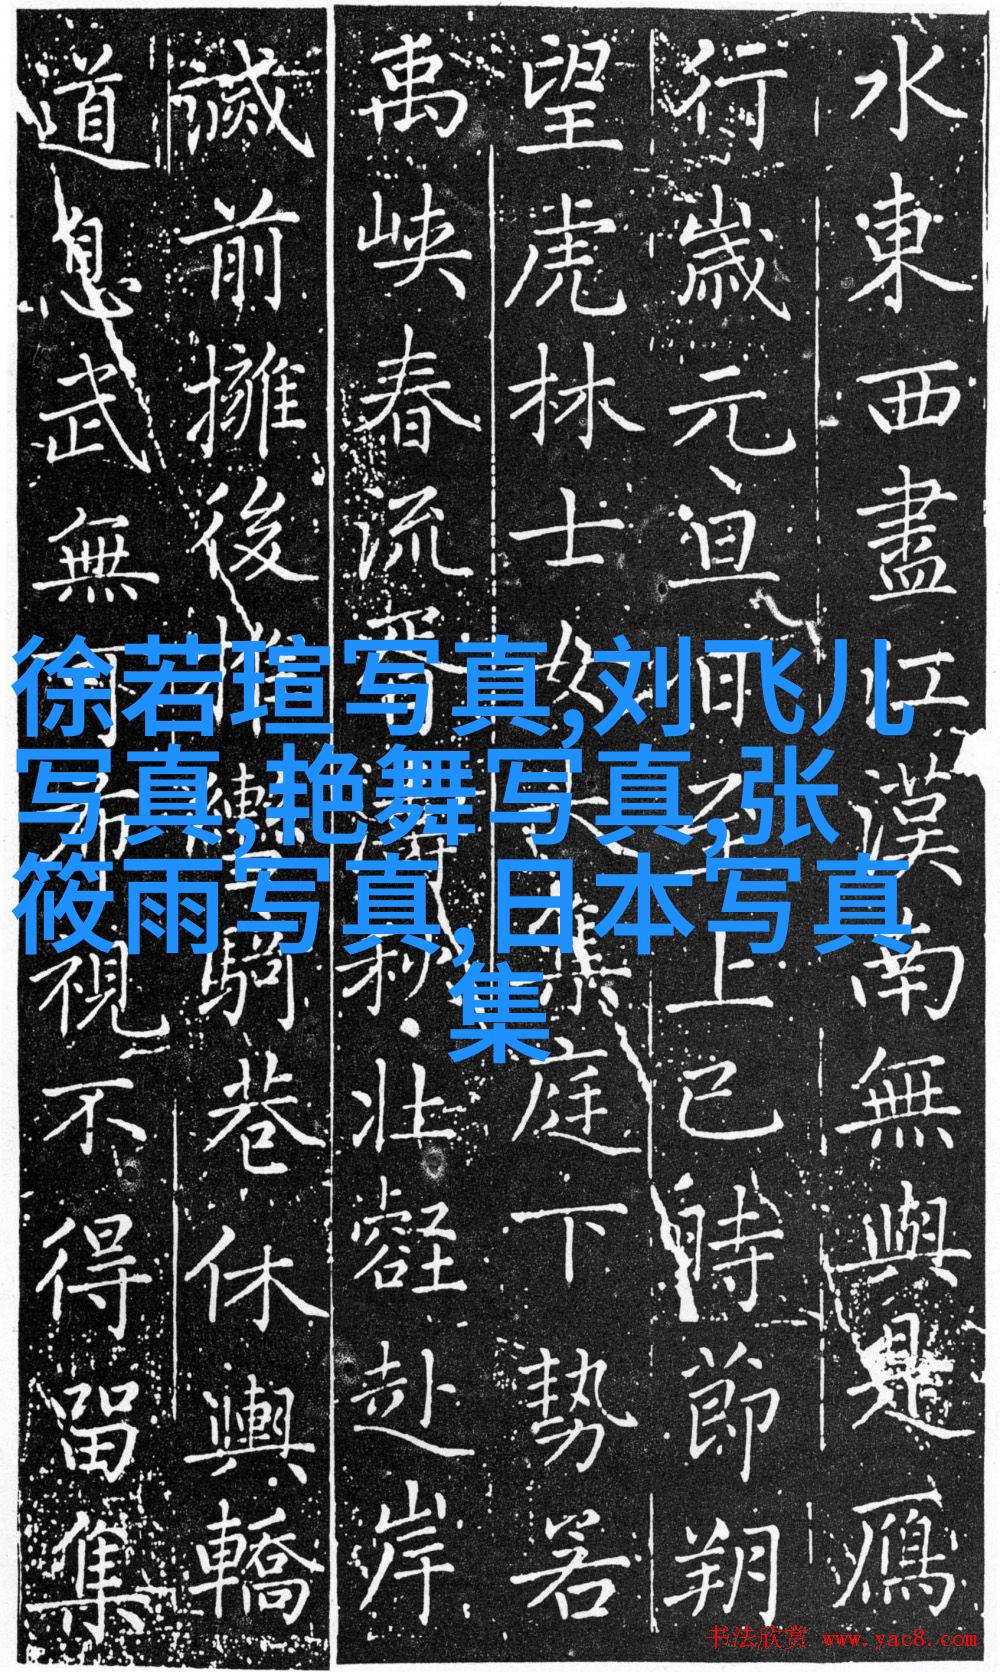 水東西盡江漢南無與是鴈
行歲元旦日至上巳時節朔
望虎林士女大集庭下勢若
禹峽春流胥濤秋壯壑赴岸
滅前擁後推轡騎巷休輿轎
道息武無布視不得留集
徐若瑄写真,刘飞儿
写真,艳舞写真,张
筱雨写真,日本写真
集
书法欣赏 www.yac8.com